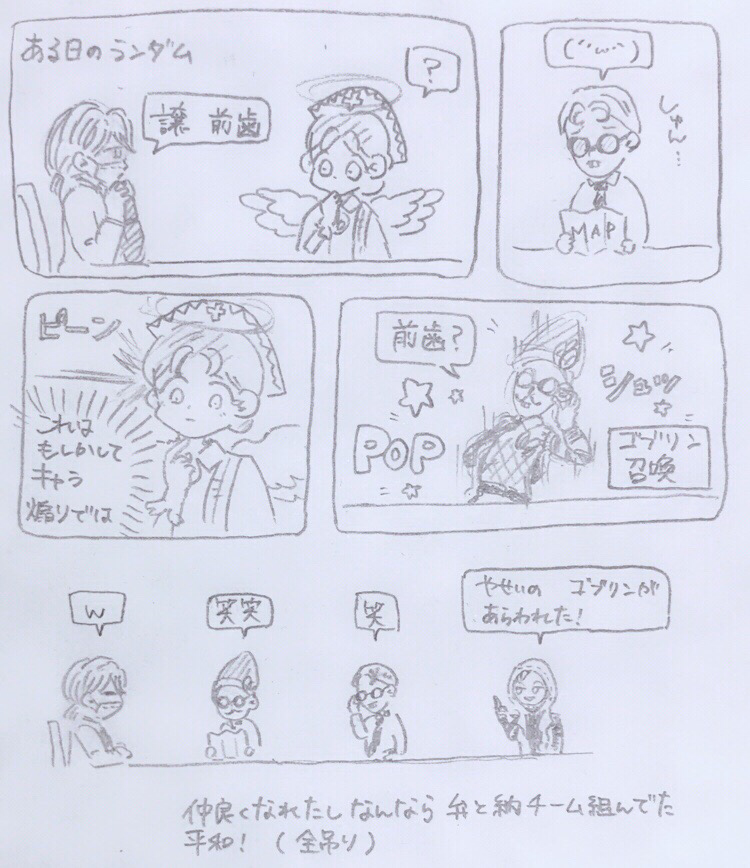 ある日のランダム
?
譲 前歯
(´･ω･`)
しゅん…
MAP
ピーン
これは
もしかして
キャラ
煽りでは
前歯?
POP
シュッ
ゴブリン
召喚
w
笑笑
笑
やせいの ゴブリンが
あらわれた!
仲良くなれたしなんなら 弁と納チーム組んでた
平和! (全吊り)